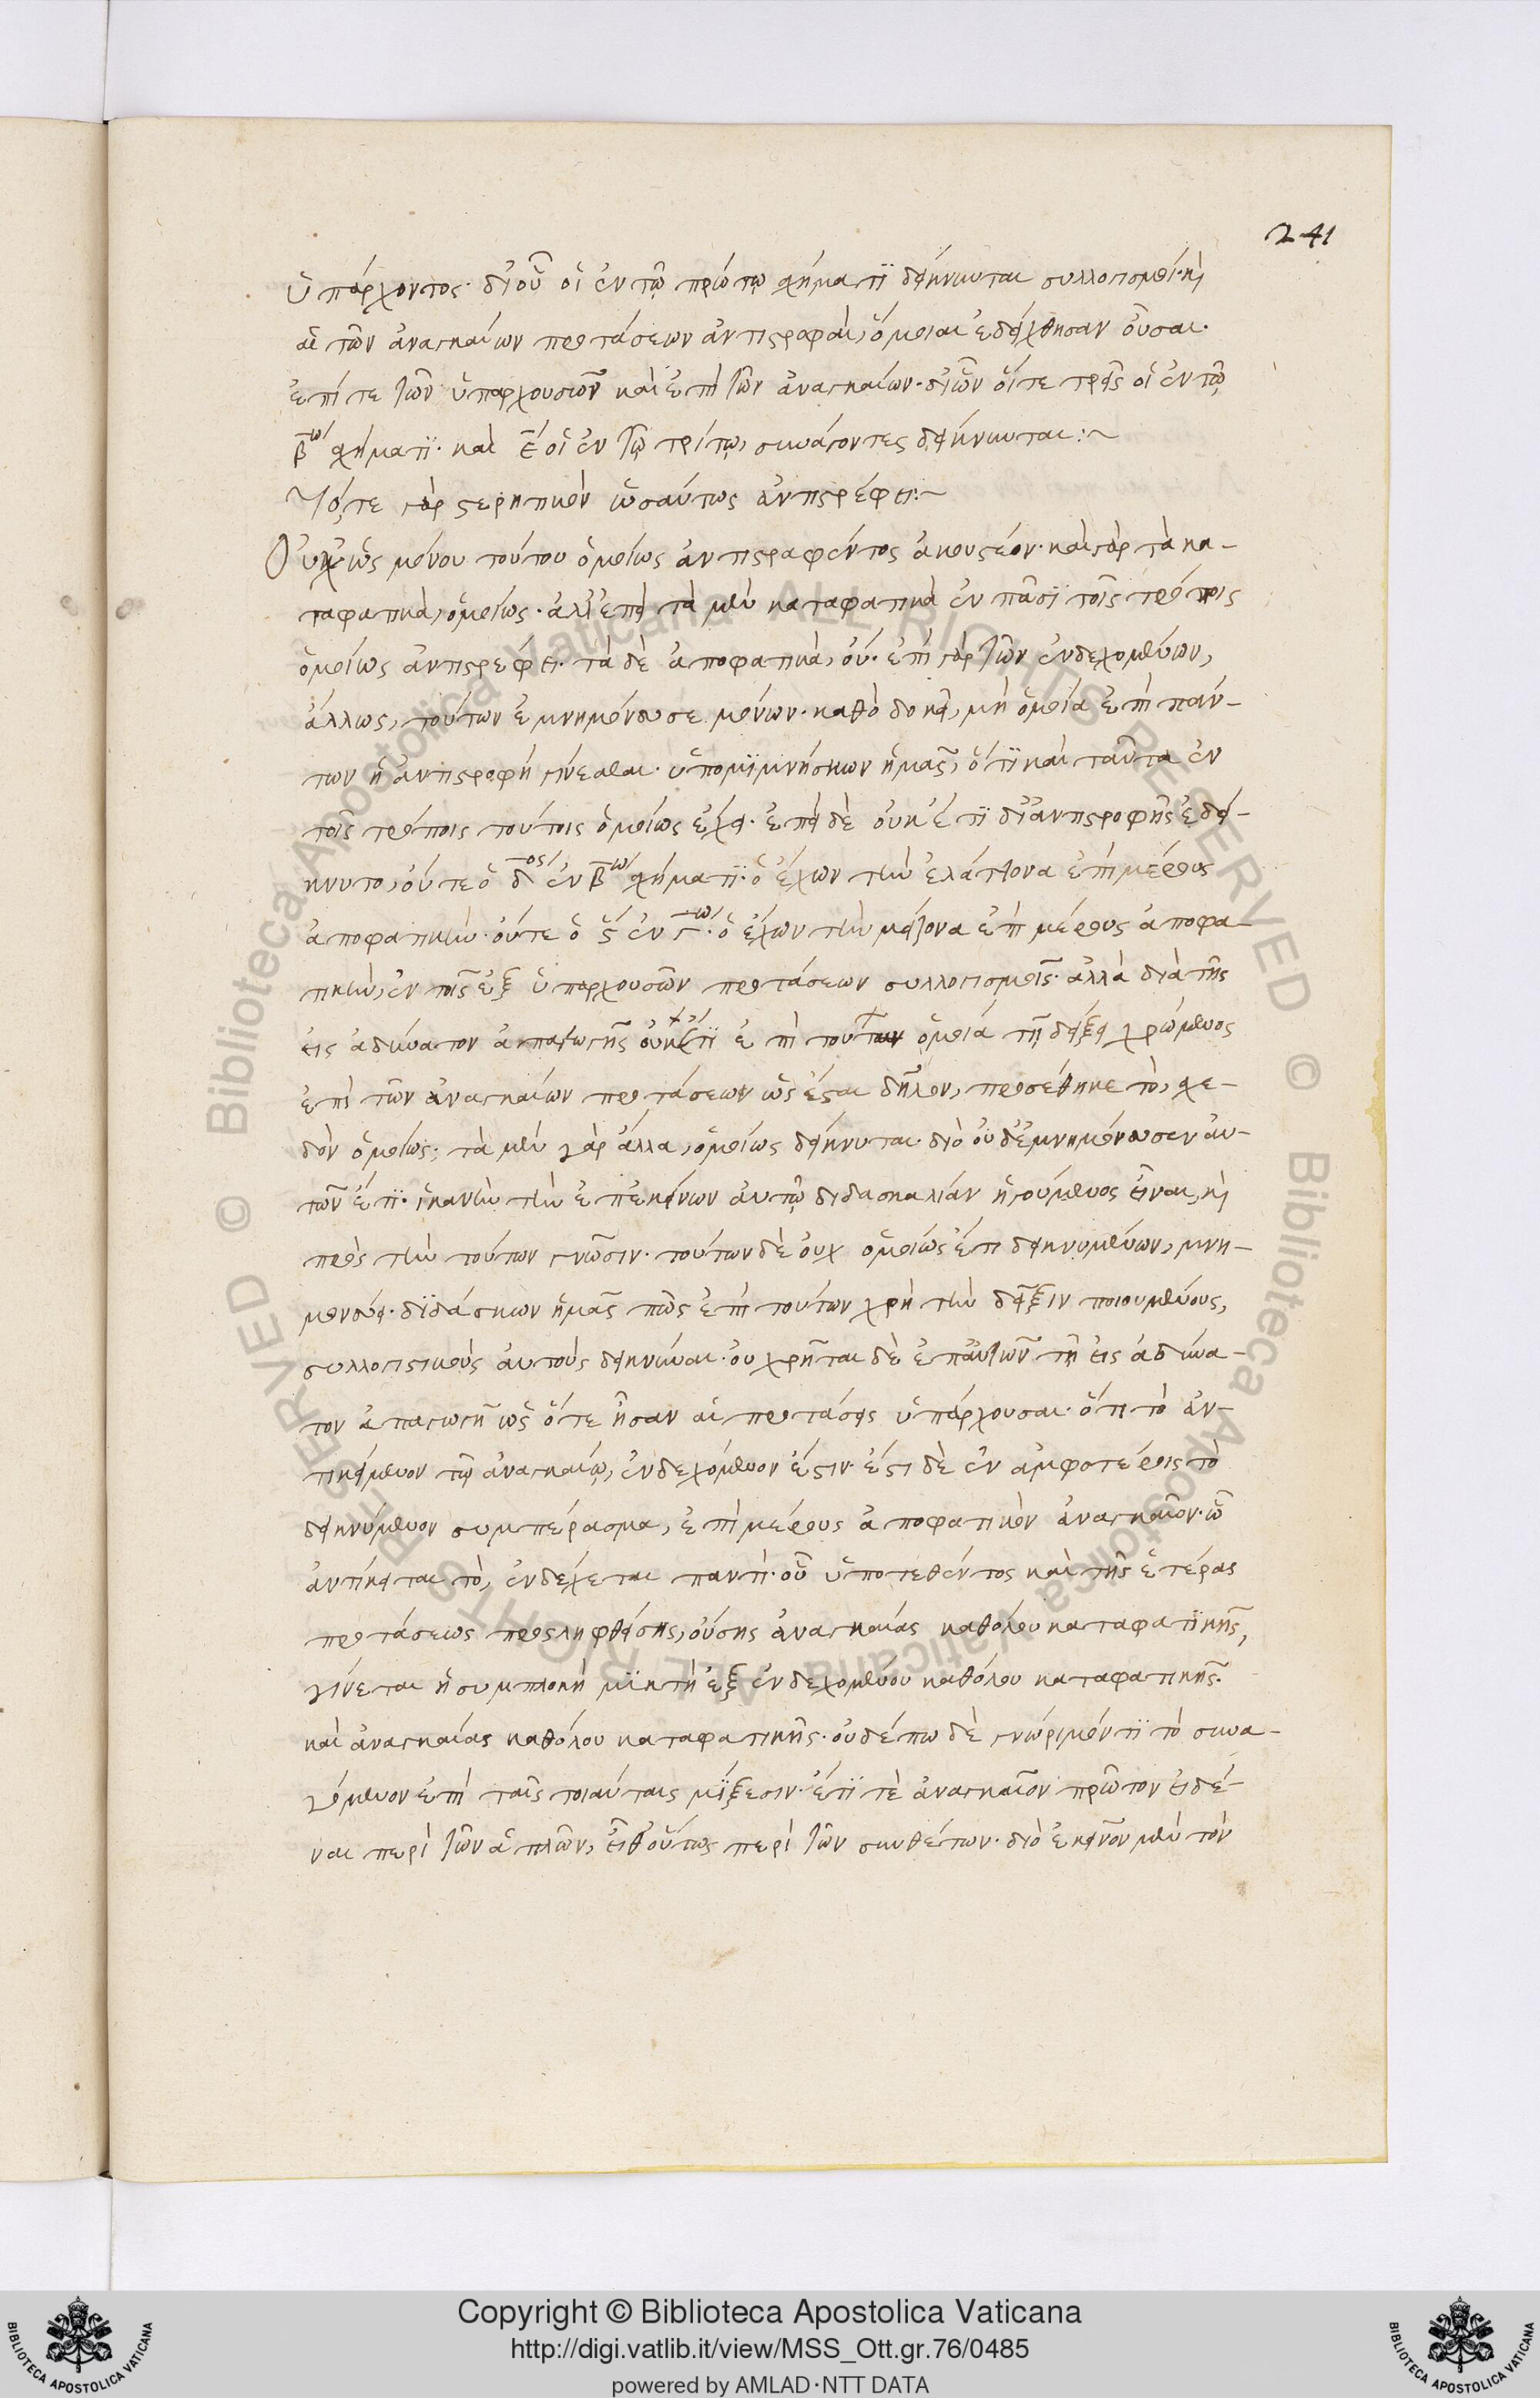 241
ὑπάρχοντος· δι' οὗ οἱ ἐν τῷ πρώτῳ σχήματι δείκνυνται συλλογισμοί· καὶ
αἱ τῶν ἀναγκαίων προτάσεων ἀντιστροφαὶ, ὅμοιαι ἐδείχθησαν οὖσαι·
ἐπί τε τῶν ὑπαρχουσῶν καὶ ἐπὶ τῶν ἀναγκαίων· δι' ὧν οἵ τε τρεῖς οἱ ἐν τῷ
β̅ῳ σχήματι· καὶ ε̅ οἱ ἐν τῷ τρίτῳ, συνάγοντες δείκνυνται:~
Τό, τε γὰρ στερητικὸν ὡσαύτως ἀντιστρέφει:~
Οὐχ' ὡς μόνου τούτου ὁμοίως ἀντιστραφέντος ἀκουστέον· καὶ γὰρ τὰ κα-
ταφατικὰ, ὁμοίως· ἀλλ' ἐπεὶ τὰ μὲν καταφατικὰ ἐν πᾶσι τοῖς τρόποις
ὁμοίως ἀντιστρέφει· τὰ δὲ ἀποφατικὰ, οὔ· ἐπὶ γὰρ τῶν ἐνδεχομένων,
ἄλλως, τούτων ἐμνημόνευσε μόνων· καθὸ δοκεῖ, μὴ ὁμοία ἐπὶ πάν-
των ἡ ἀντιστροφὴ γίνεσθαι· ὑπομιμνήσκων ἡμᾶς, ὅτι καὶ ταῦτα ἐν
τοῖς τρόποις τούτοις ὁμοίως ἔχει· ἐπεὶ δὲ οὐκ' ἔτι δι' ἀντιστροφῆς ἐδεί-
κνυτο, οὔτε ὁ δ̅ος ἐν β̅ῳ σχήματι· ὁ ἔχων τὴν ἐλάττονα ἐπὶ μέρους
ἀποφατικήν· οὔτε ὁ ϛ̅ ἐν γ̅ῳ· ὁ ἔχων τὴν μείζονα ἐπὶ μέρους ἀποφα-
τικὴν, ἐν τοῖς ἐξ ὑπαρχουσῶν προτάσεων συλλογισμοῖς· ἀλλὰ διὰ τῆς
εἰς ἀδύνατον ἀπαγωγῆς οὐκέτι ἐπὶ τούτων ὁμοία τῇ δείξει χρώμενος
ἐπὶ τῶν ἀναγκαίων προτάσεων ὡς ἔσται δῆλον, προσέθηκε τὸ, σχε-
δὸν ὁμοίως· τὰ μὲν γὰρ ἄλλα, ὁμοίως δείκνυται· διὸ οὐδ' ἐμνημόνευσεν αὐ-
τῶν ἔτι· ἱκανὴν τὴν ἐπ' ἐκείνων αὐτῷ διδασκαλίαν ἡγούμενος εἶναι, καὶ
πρὸς τὴν τούτων γνῶσιν· τούτων δὲ οὐχ ὁμοίως ἔτι δεικνυμένων, μνη-
μονεύει· διδάσκων ἡμᾶς πῶς ἐπὶ τούτων χρὴ τὴν δεῖξιν ποιουμένους,
συλλογιστικοὺς αὐτοὺς δεικνύναι· οὐ χρῆται δὲ ἐπ' αὐτῶν τῇ εἰς ἀδύνα-
τον ἀπαγωγῇ ὡς ὅτε ἦσαν αἱ προτάσεις ὑπάρχουσαι· ὅτι τὸ ἀν-
τικείμενον τῷ ἀναγκαίῳ, ἐνδεχόμενον ἐστιν· ἔστι δὲ ἐν ἀμφοτέροις τὸ
δεικνύμενον συμπέρασμα, ἐπὶ μέρους ἀποφατικὸν ἀναγκαῖον· ᾧ
ἀντίκειται τὸ, ἐνδέχεται παντί· οὗ ὑποτεθέντος καὶ τῆς ἑτέρας
προτάσεως προσληφθείσης, οὔσης ἀναγκαίας καθόλου καταφατικῆς,
γίνεται ἡ συμπλοκὴ μικτὴ ἐξ ἐνδεχομένου καθόλου καταφατικῆς·
καὶ ἀναγκαίας καθόλου καταφατικῆς· οὐδέπω δὲ γνώριμόν τι τὸ συνα-
γόμενον ἐπὶ ταῖς τοιαύταις μίξεσιν· ἔτι τὲ ἀναγκαῖον πρῶτον εἰδέ-
ναι περὶ τῶν ἁπλῶν, εἶθ' οὕτως περὶ τῶν συνθέτων· διὸ ἐκεῖνον μὲν τὸν
Copyright © Biblioteca Apostolica Vaticana
http://digi.vatlib.it/view/MSS_Ott.gr.76/0485
powered by AMLAD·NTT DATA